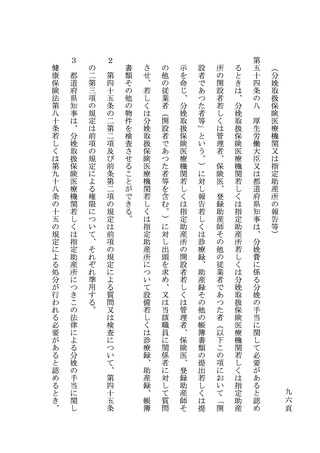 九六頁
（分娩取扱保険医療機関又は指定助産所の報告等）
第五十四条の八　厚生労働大臣又は都道府県知事は、分娩費に係る分娩の手当に関して必要があると認め
るときは、分娩取扱保険医療機関若しくは指定助産所若しくは分娩取扱保険医療機関若しくは指定助産
所の開設者若しくは管理者、保険医、登録助産師その他の従業者であつた者（以下この項において「開
設者であつた者等」という。）に対し報告若しくは診療録、助産録その他の帳簿書類の提出若しくは提
示を命じ、分娩取扱保険医療機関若しくは指定助産所の開設者若しくは管理者、保険医、登録助産師そ
の他の従業者（開設者であつた者等を含む。）に対し出頭を求め、又は当該職員に関係者に対して質問
させ、若しくは分娩取扱保険医療機関若しくは指定助産所について設備若しくは診療録、助産録、帳簿
書類その他の物件を検査させることができる。
２　第四十五条の二第二項及び前条第二項の規定は前項の規定による質問又は検査について、第四十五条
の二第三項の規定は前項の規定による権限について、それぞれ準用する。
３　都道府県知事は、分娩取扱保険医療機関若しくは指定助産所につきこの法律による分娩の手当に関し
健康保険法第八十条若しくは第九十八条の十五の規定による処分が行われる必要があると認めるとき、